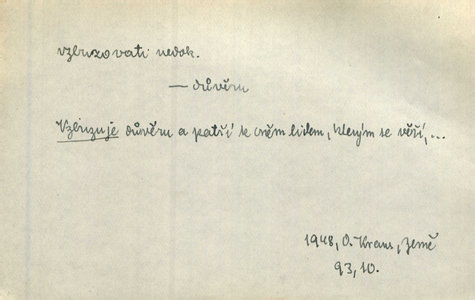 vzbuzovati nedok.
— důvěru
Vzbuzuje důvěru a patří k oněm lidem, kterým se věří, ...
1948, O. Kraus, Země
93, 10.